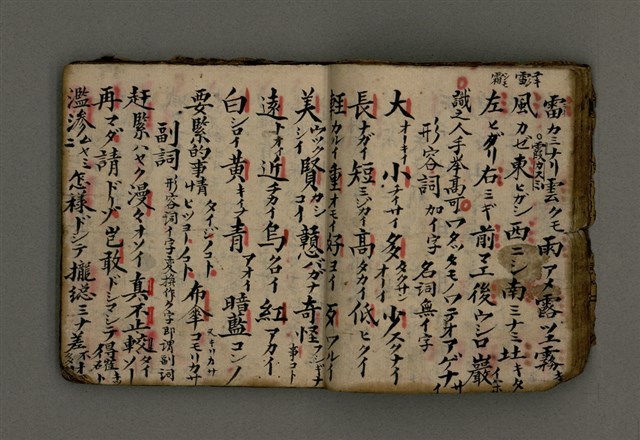 雷カミナリ雲クモ雨アメ露ツユ霧キリ
風カゼ東ヒガシ西ニシ南ミナミ北キタ
霞カスミ
左ヒダリ右ミギ前マエ後ウシロ巖イハホ
識之人手挙高可ワタクモノワテオアゲナサイ
形容詞 加イ字 名詞無イ字
大オーキイ小チイサイ多タクサンオイ少スクナイ
長ナガイ短ミジカイ高タカイ低ヒクイ
軽カルイ重オモイ好ヨイ歹ワルイ
美ウツクシイ賢カシコイ戇バカナ奇怪
遠トオイ近チカイ烏クロイ紅アカイ
白シロイ黄キイロ青アオイ暗藍コンノ
要緊的事情タイジノコト布傘コモリカサ
副詞 形容詞イ字変換作ク字即謂副詞
赶緊ハヤク漫々ナソイ真不止
再マダ請ドーゾ豈敢ドシマシテ
濫滲ムヤミニ怎様ドシテ攏総ミナ差不多